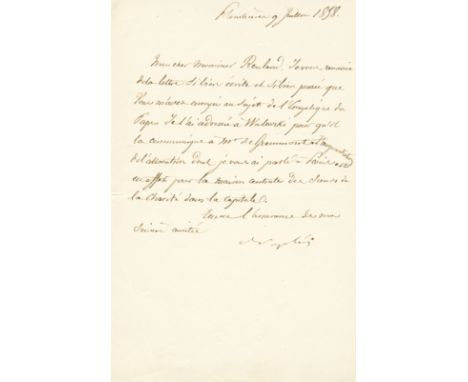 Plombières 9 Juillet 1858.
Mon cher Monsieur Rouland, Je vous remercie
de la lettre si bien écrite et si bien pensée que
Vous m'avez envoyée au sujet de l'Encyclique du
Pape. Je l'ai adressée à Walewski pour qu'il
la communique à Mr de Grammont
de l'allocation dont je vous ai parlé à Paris
en effet pour la maison centrale des Sœurs de
la Charité dans la capitale.
l'assurance de ma
sincère amitié
Napoléon